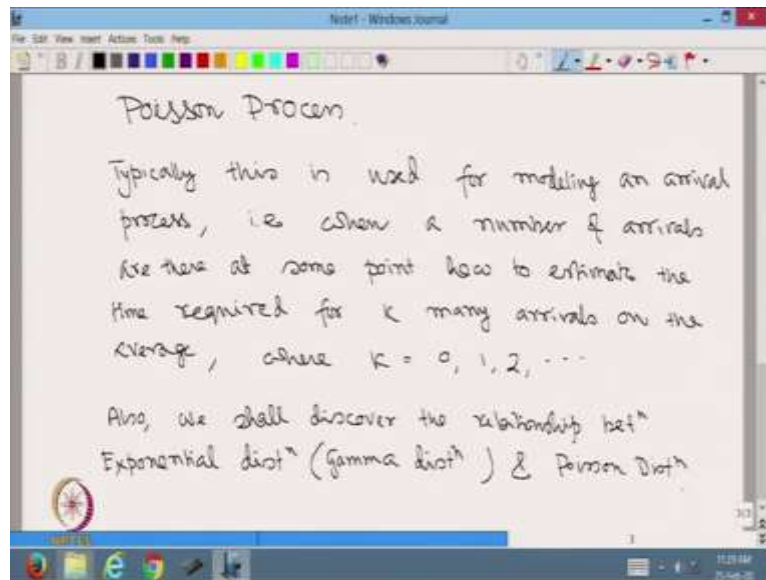 Note1 - Windows Journal
File Edit View Insert Actions Tools Help
Poisson Process
Typically this is used for modeling an arrival
process, i.e when a number of arrivals
are there at some point how to estimate the
time required for K many arrivals on the
average, where K = 0, 1, 2, ...
Also, we shall discover the relationship betⁿ
Exponential distⁿ (Gamma distⁿ) & Poisson Distⁿ
NPTEL
3/3
3
11:29 AM